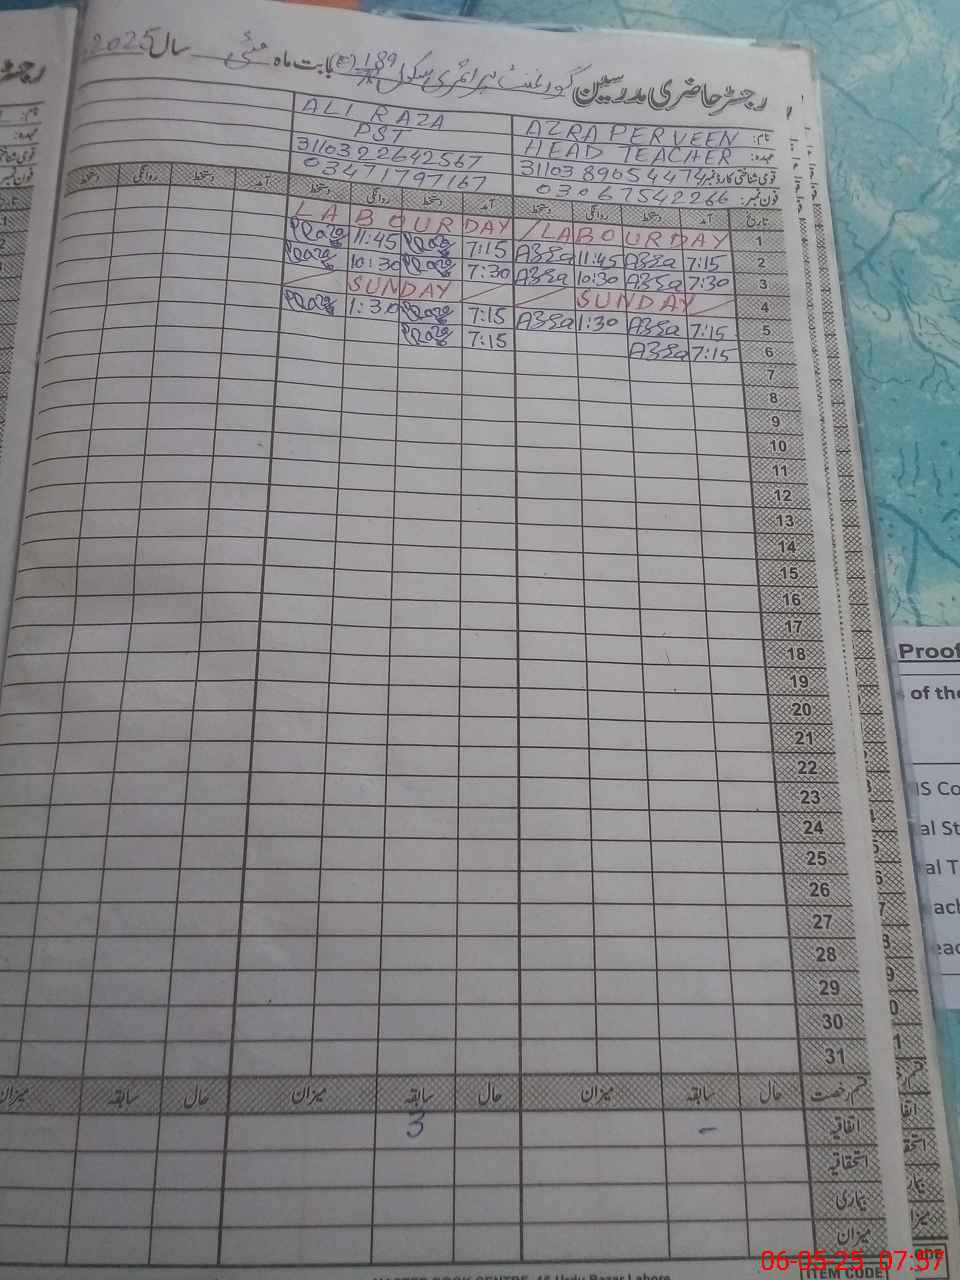 رجسٹر حاضری مدرسین گورنمنٹ پرائمری سکول 189 (E) بابت ماہ مئی سال 2025
نام: AZRA PERVEEN ALI RAZA
عہدہ: HEAD TEACHER PST
قومی شناختی کارڈ نمبر: 3110389054474 3110322642567
فون نمبر: 03067542266 03471797167
تاریخ آمد دستخط روانگی دستخط آمد دستخط روانگی دستخط آمد دستخط روانگی دستخط
1 LABOUR DAY / LABOUR DAY
2 7:15 Azra 11:45 Azra 7:15 11:45
3 7:30 Azra 10:30 Azra 7:30 10:30
4 SUNDAY SUNDAY
5 7:15 Azra 1:30 Azra 7:15 1:30
6 7:15 Azra 7:15
7
8
9
10
11
12
13
14
15
16
17
18
19
20
21
22
23
24
25
26
27
28
29
30
31
قسم رخصت حال سابقہ میزان حال سابقہ میزان حال سابقہ میزان
اتفاقیہ - 3
استحقاقیہ
بیماری
میزان
ITEM CODE
Proof
of the
IS Co
al St
al T
ach
eac
06-05-25 07:37